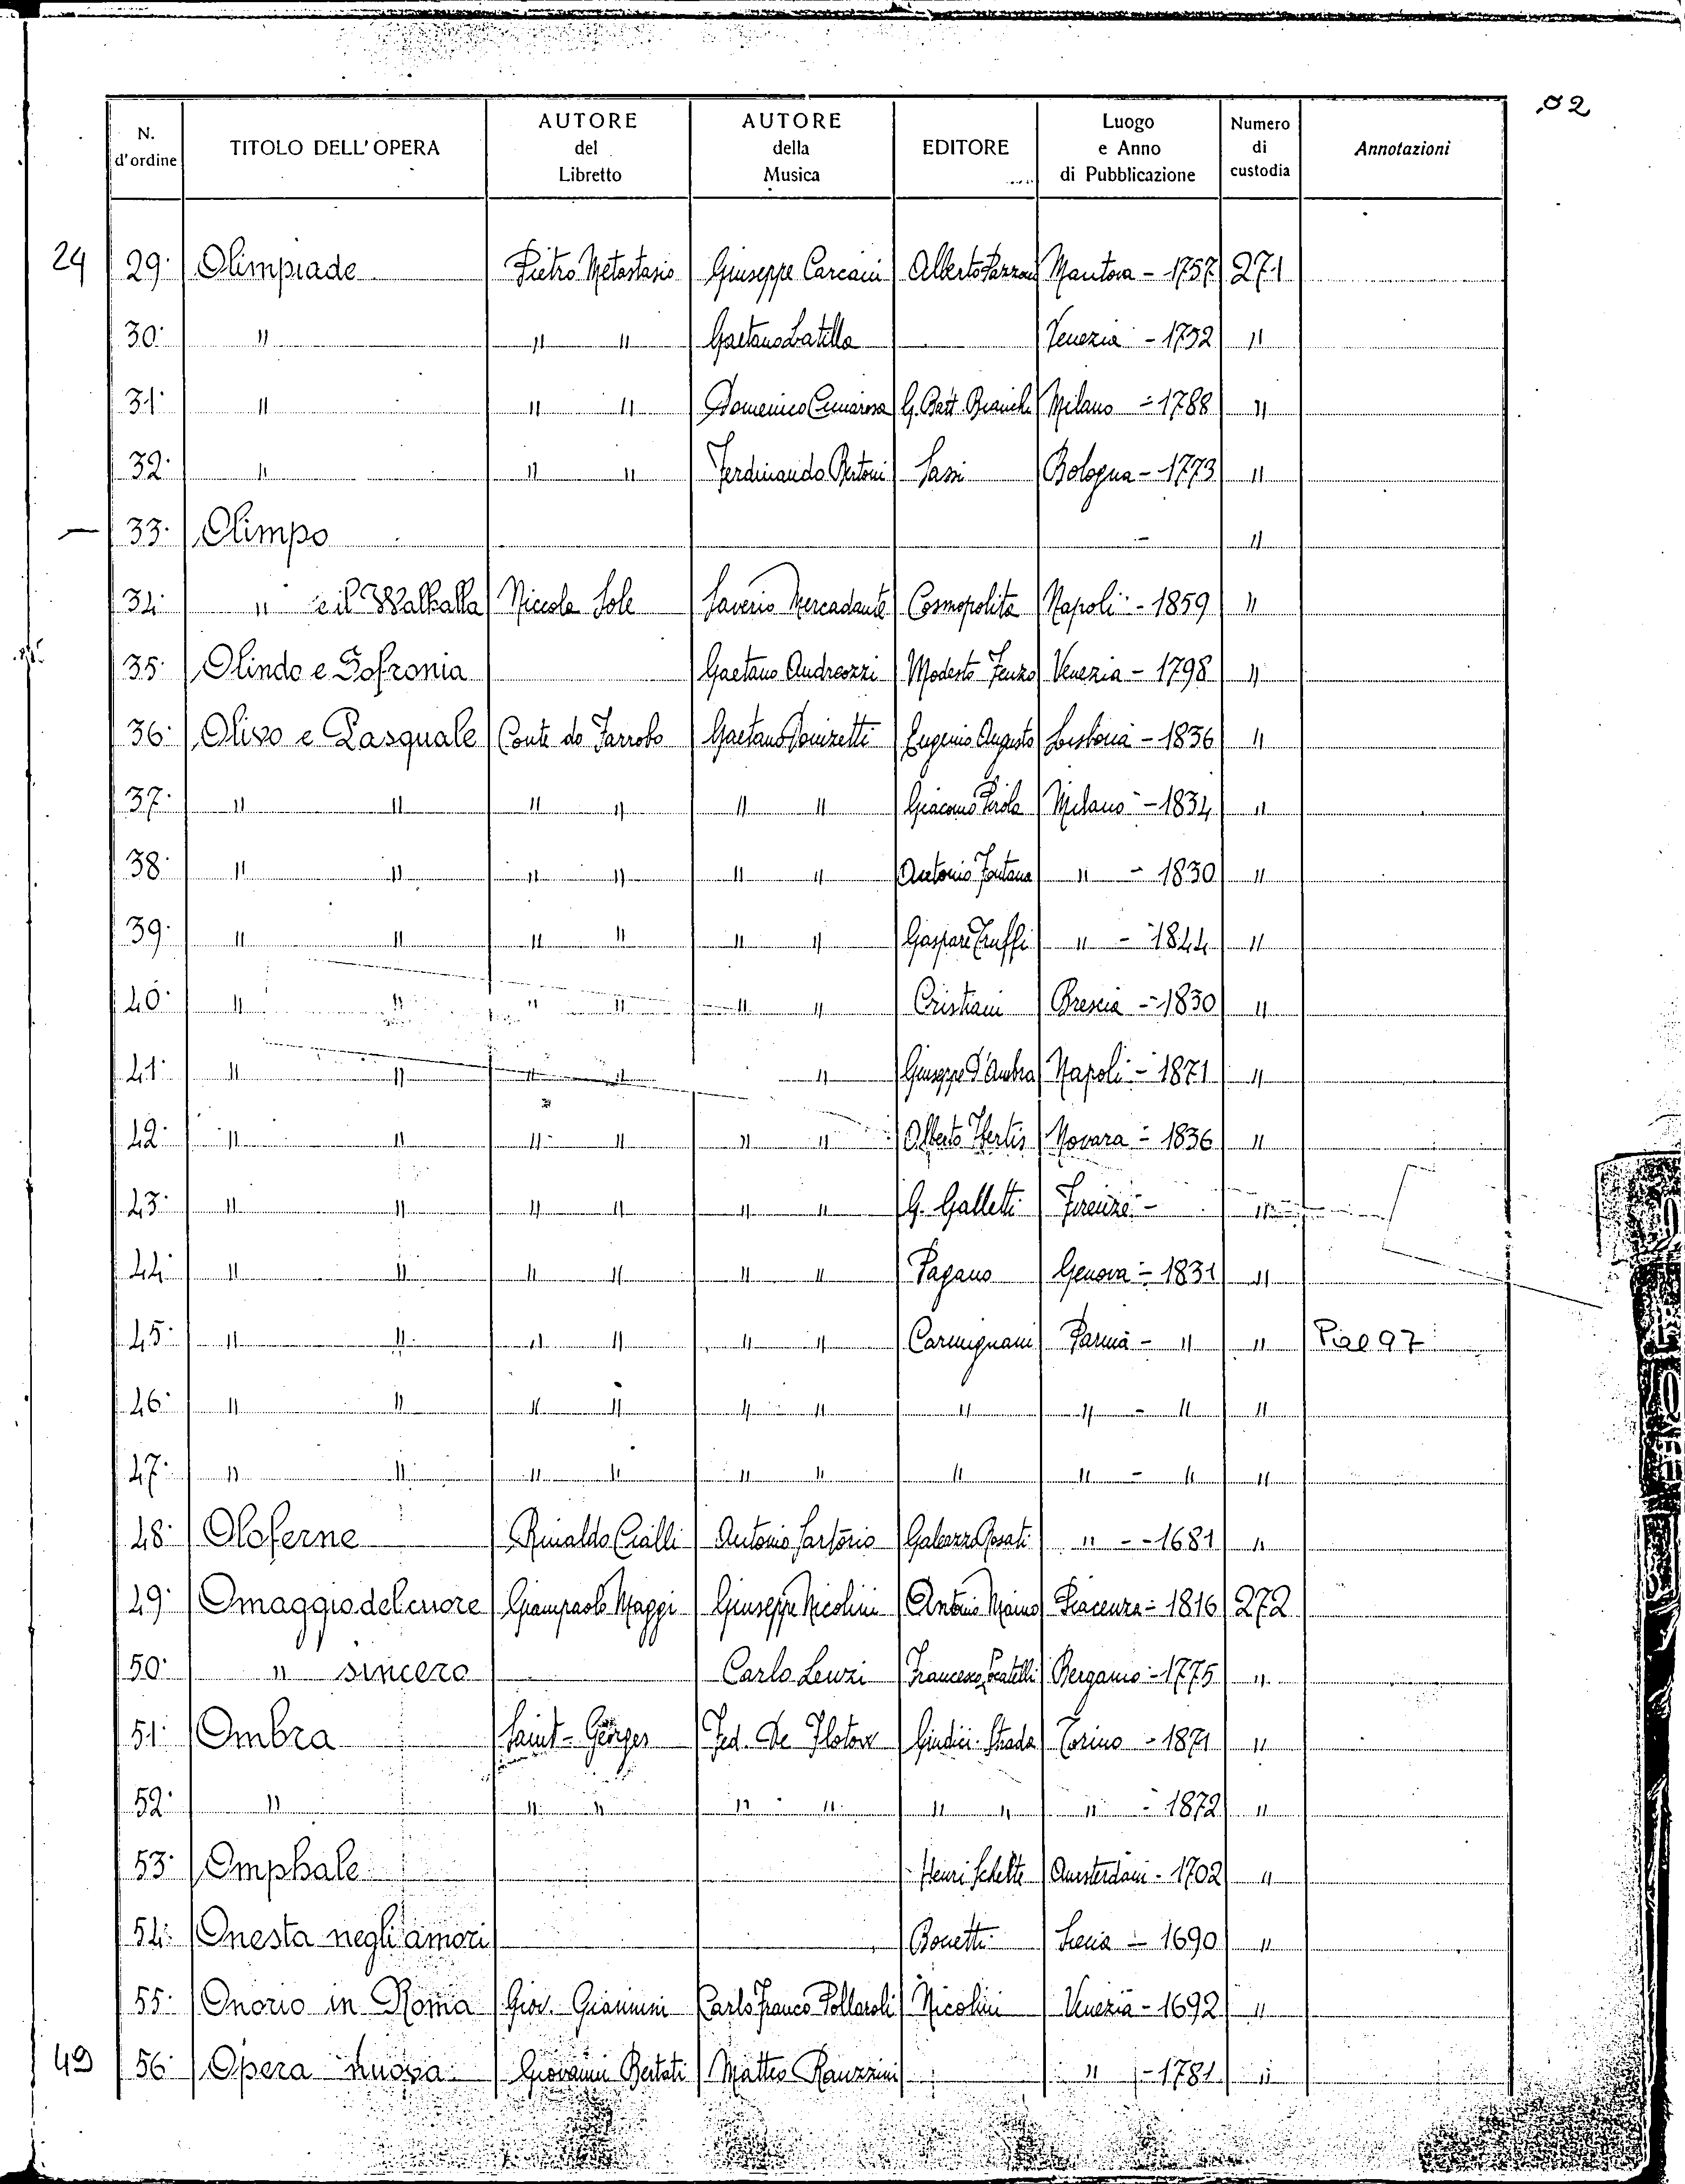 02
N. d'ordine | TITOLO DELL'OPERA | AUTORE del Libretto | AUTORE della Musica | EDITORE | Luogo e Anno di Pubblicazione | Numero di custodia | Annotazioni
24 29. Olimpiade Pietro Metastasio Giuseppe Carcani Alberto Pazzoni Mantova - 1757 271
30. " " " Gaetano Latilla Venezia - 1752 "
31. " " " Domenico Cimarosa G. Batt. Bianchi Milano - 1788 "
32. " " " Ferdinando Bertoni Sassi Bologna - 1773 "
— 33. Olimpo - "
34. " e il Walhalla Niccola Sole Saverio Mercadante Cosmopolita Napoli - 1859 "
35. Olindo e Sofronia Gaetano Andreozzi Modesto Fenzo Venezia - 1798 "
36. Olivo e Pasquale Conte do Farrobo Gaetano Donizetti Eugenio Augusto Lisbona - 1836 "
37. " " " " " " Giacomo Pirola Milano - 1834 "
38. " " " " " " Antonio Fontana " - 1830 "
39. " " " " " " Gaspare Truffi " - 1844 "
40. " " " " " " Cristiani Brescia - 1830 "
41. " " " " " Giuseppe D'Ambra Napoli - 1871 "
42. " " " " " " Alberto Ibertis Novara - 1836 "
43. " " " " " " G. Galletti Firenze - "
44. " " " " " " Pagano Genova - 1831 "
45. " " " " " " Carmignani Parma - " " 97
46. " " " " " " " " - " "
47. " " " " " " " " - " "
48. Oloferne Rinaldo Cialli Antonio Sartorio Galeazzo Rosati " - - 1681 "
49. Omaggio del cuore Giampaolo Maggi Giuseppe Nicolini Antonio Maino Piacenza - 1816 272
50. " sincero Carlo Lenzi Francesco Locatelli Bergamo - 1775 "
51. Ombra Saint-Georges Fed. De Flotow Giudici-Strada Torino - 1871 "
52. " " " " " " " " - 1872 "
53. Omphale Henri Schelte Amsterdam - 1702 "
54. Onesta negli amori Bonetti Siena - 1690 "
55. Onorio in Roma Giov. Giannini Carlo Franco Pollaroli Nicolini Venezia - 1692 "
49 56. Opera nuova Giovanni Bertati Matteo Rauzzini " - 1781 "